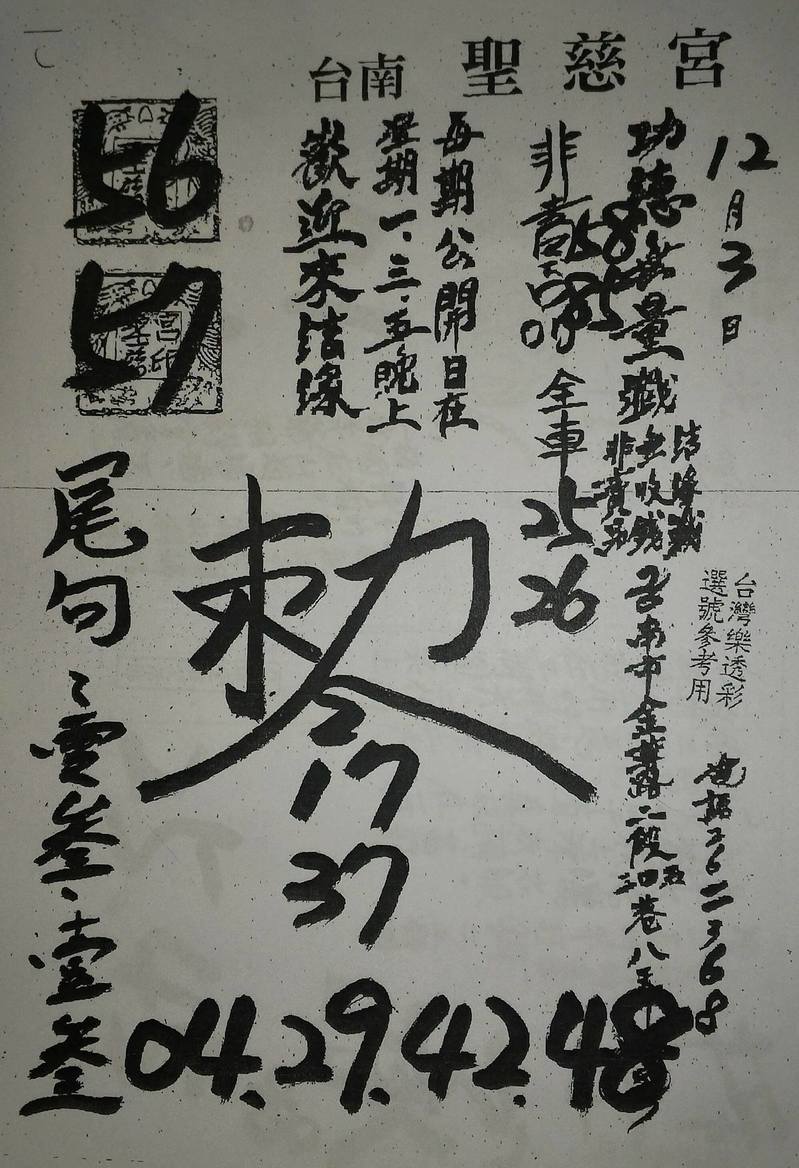 台南 聖慈宮
12月3日
功德無量
結緣
無收錢
非賣品
台灣樂透彩
選號參考用
非賣品
58
85
全車
25
26
每期公開日在
星期一、三、五晚上
歡迎來結緣
56
57
宮印
敕令
17
37
尾句
零叁、壹叁
台南市金華路二段
巷八
電話
2368
04.29.42.48